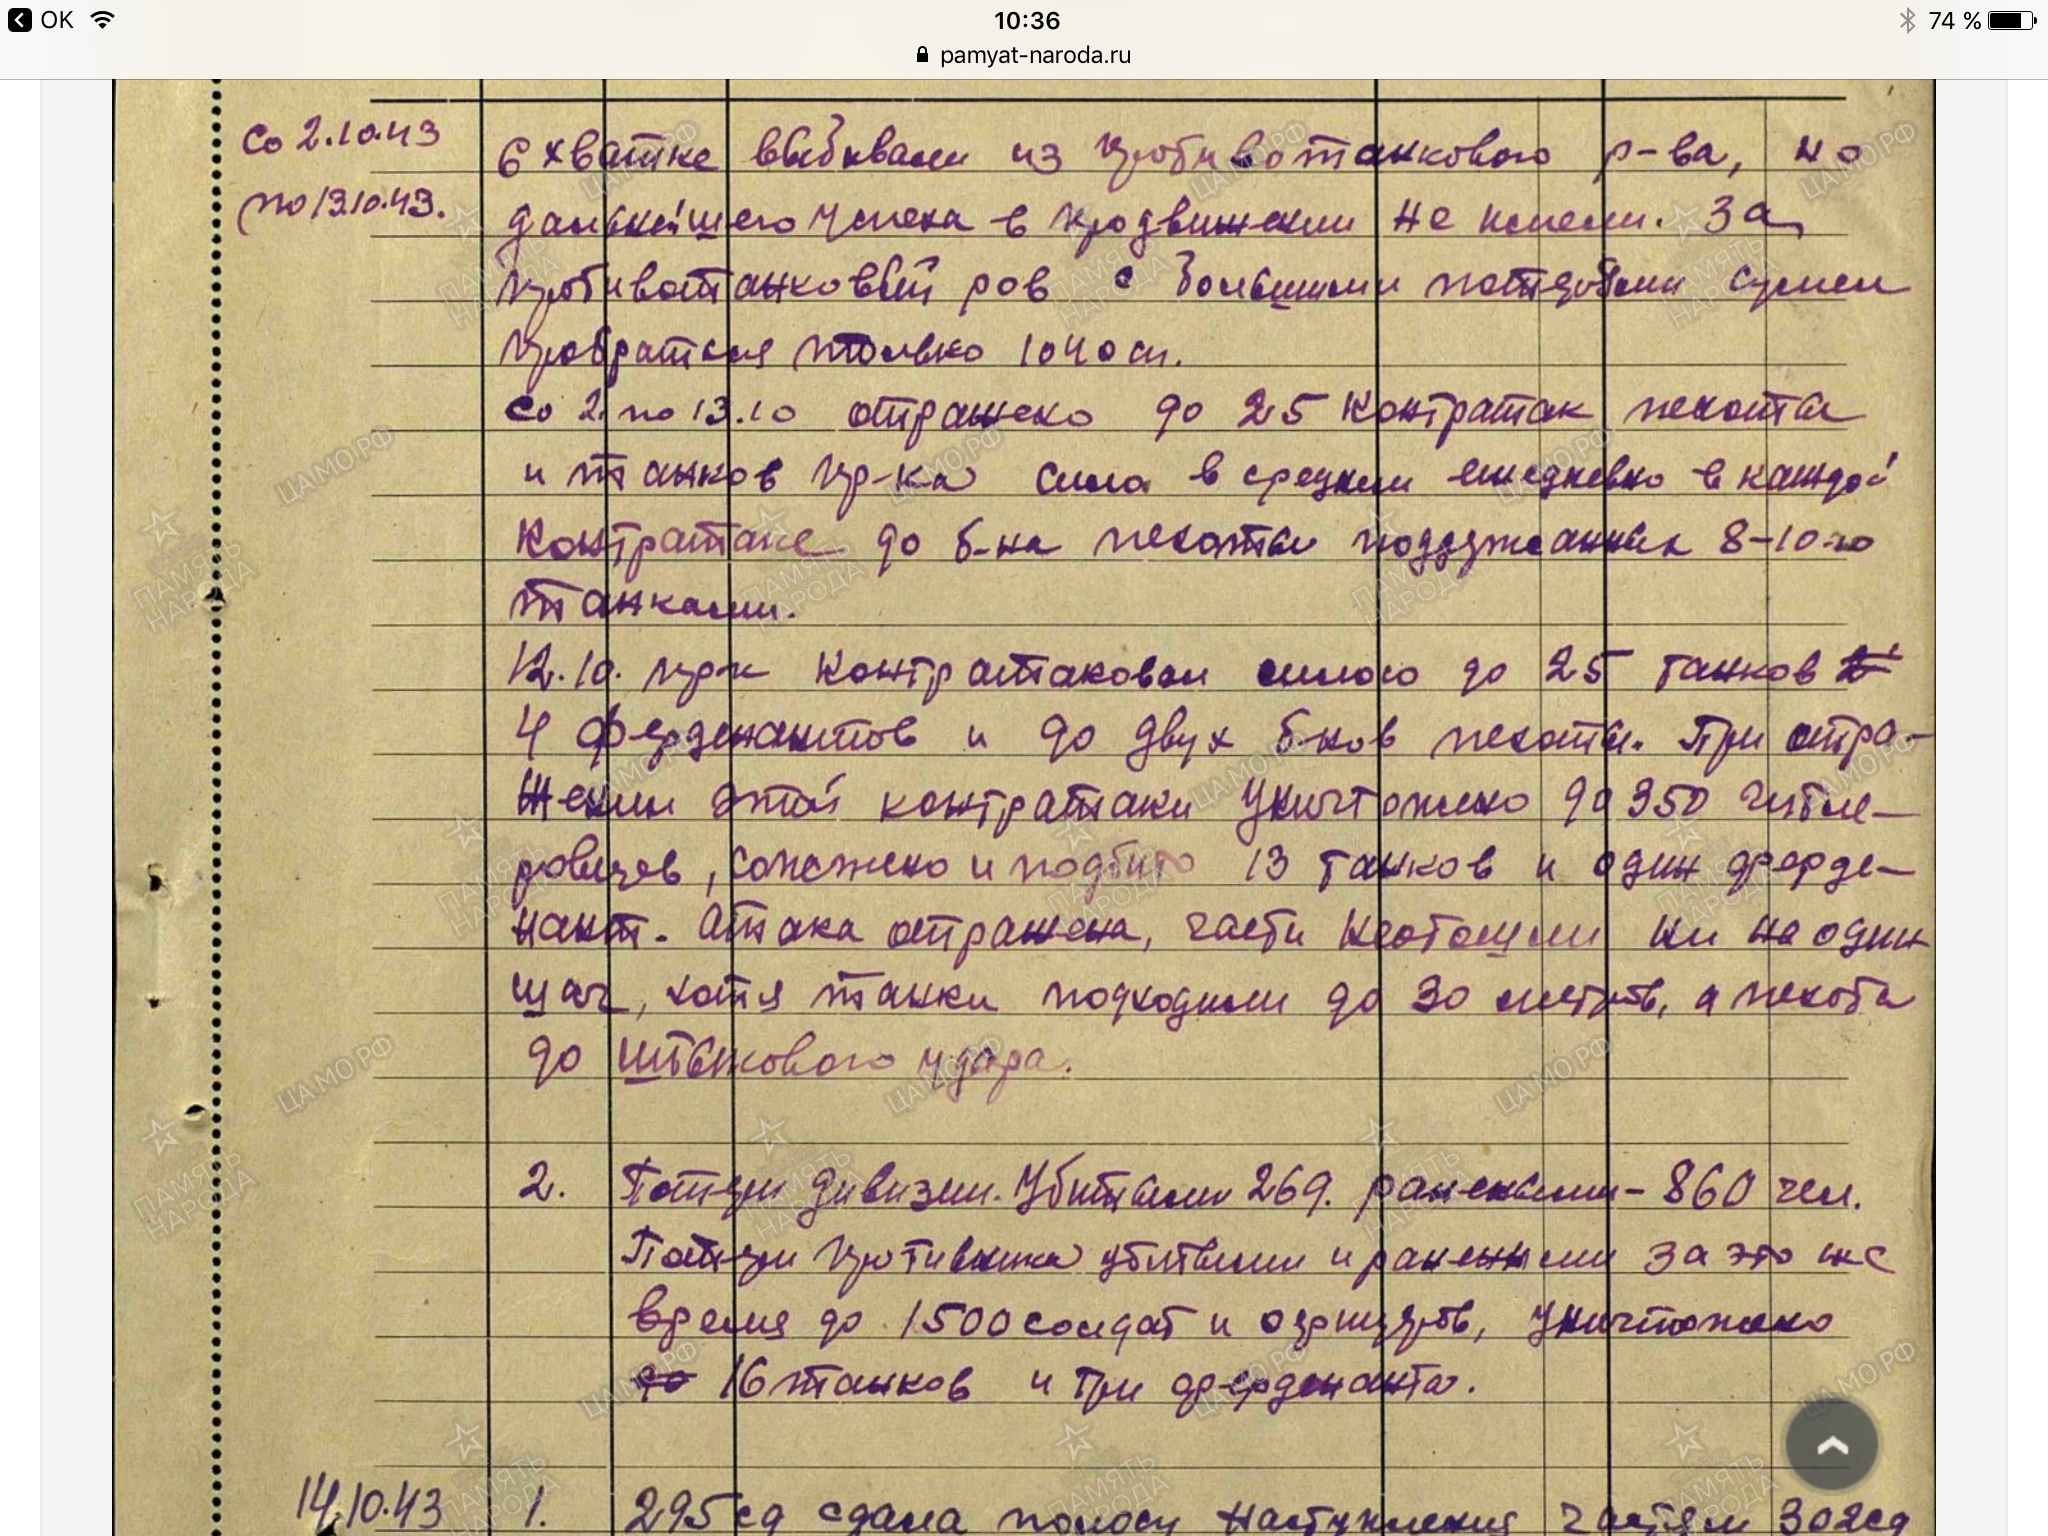 OK
10:36
74 %
pamyat-naroda.ru
Со 2.10.43
по 13.10.43.
схватке выбивали из противотанкового р-ва, но
дальнейшего успеха в продвижении не имели. За
противотанковый ров с большими потерями сумел
пробраться только 1040 сп.
Со 2. по 13.10 отражено до 25 контратак пехоты
и танков пр-ка сила в среднем ежедневно в каждой
контратаке до б-на пехоты поддержанных 8-10-ю
танками.
12.10. пр-к контратаковал силою до 25 танков
4 фердинантов и до двух б-нов пехоты. При отра-
жении этой контратаки уничтожено до 350 гитле-
ровцев, сожжено и подбито 13 танков и один ферде-
нант. Атака отражена, части неотошли ни на один
шаг, хотя танки подходили до 30 метров, а пехота
до штыкового удара.
2. Потери дивизии. Убитыми 269. ранеными - 860 чел.
Потери противника убитыми и ранеными за это же
время до 1500 солдат и офицеров, уничтожено
до 16 танков и три ферденанта.
14.10.43 1. 295 сд сдала полосу наступления частям 302 сд
ЦАМО РФ
ПАМЯТЬ НАРОДА